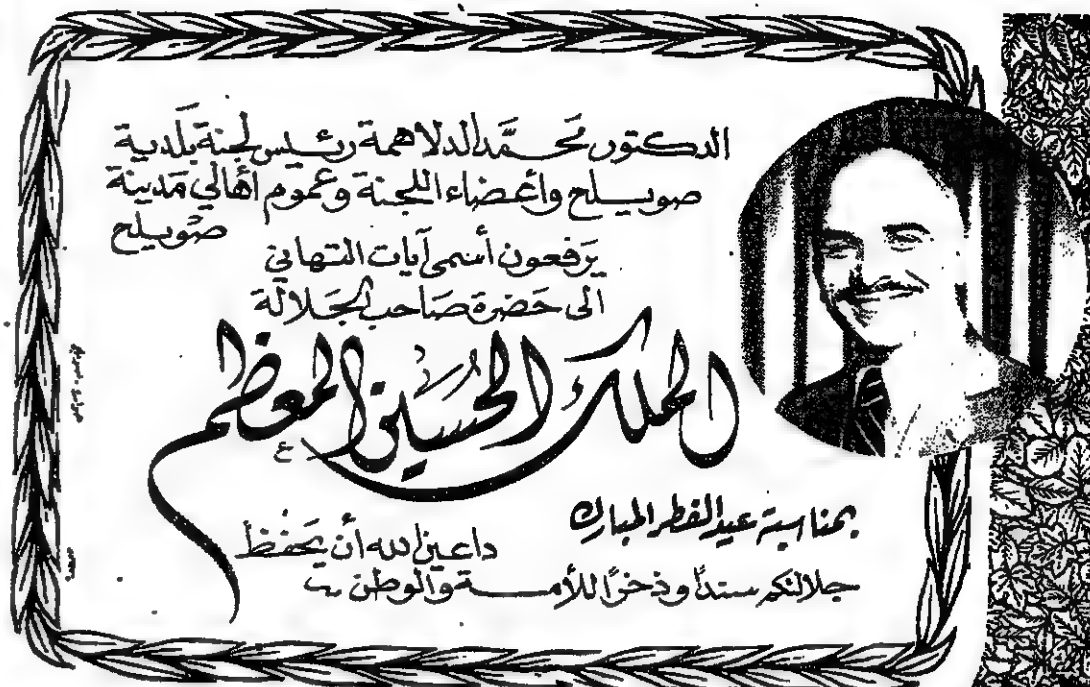 الدكتور محمَّد الدلاهمة رئيس لجنة بلدية
صويلح وأعضاء اللجنة وعموم اهالي مدينة
صويلح
يرفعون أسمى آيات التهاني
الى حضرة صاحب الجلالة
الملك الحسين المعظم
بمناسبة عيد الفطر المبارك
داعين الله أن يحفظ
جلالتكم سندًا وذخرًا للأمة والوطن